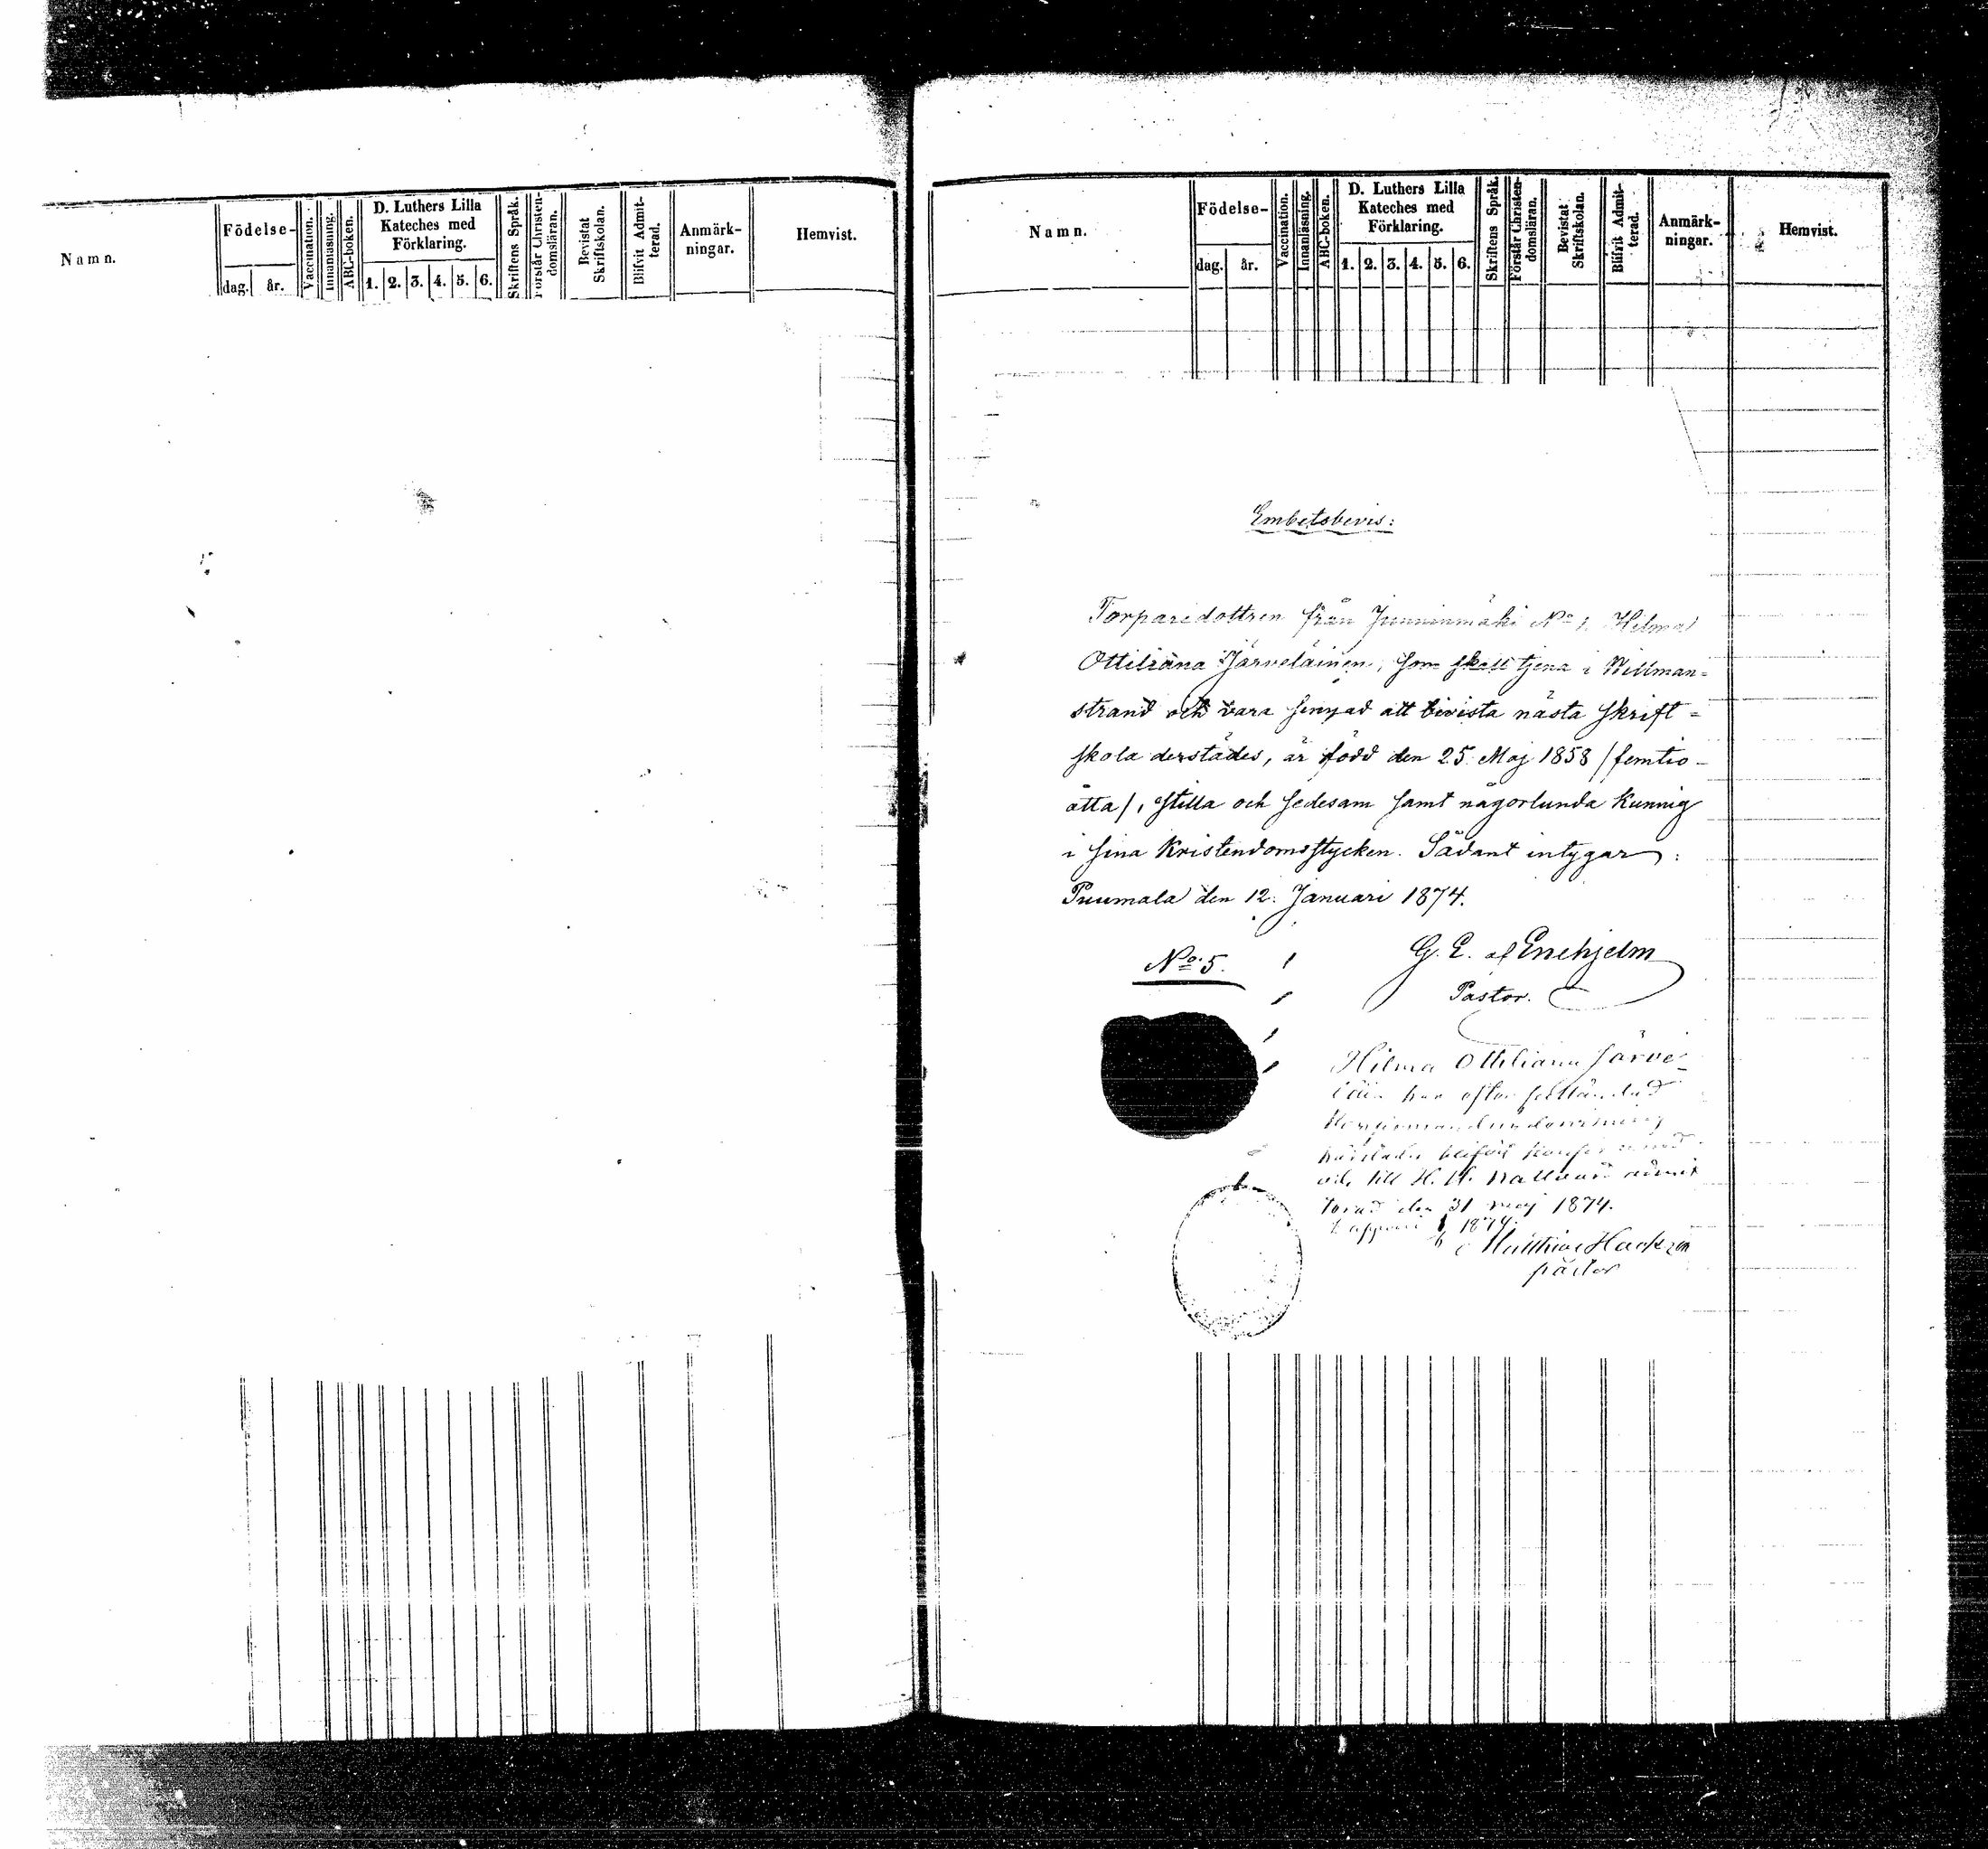 Namn.
Födelse-
dag. år.
Vaccination.
Innanläsning.
ABC-boken.
D. Luthers Lilla
Kateches med
Förklaring.
1. 2. 3. 4. 5. 6.
Skriftens Språk.
Förstår Christen-
domsläran.
Bevistat
Skriftskolan.
Blifvit Admit-
terad.
Anmärk-
ningar.
Hemvist.
Namn.
Födelse-
dag. år.
Vaccination.
Innanläsning.
ABC-boken.
D. Luthers Lilla
Kateches med
Förklaring.
1. 2. 3. 4. 5. 6.
Skriftens Språk.
Förstår Christen-
domsläran.
Bevistat
Skriftskolan.
Blifvit Admit-
terad.
Anmärk-
ningar.
Hemvist.
Embetsbevis:
Torparedottren från Junninmäki No 1. Hilma
Ottiliana Järveläinen, som skall tjena i Willman=
strand och vara sinnad att bevista nästa skrift=
skola derstädes, är född den 25. Maj 1858 /femtio-
åtta/, stilla och sedesam samt någorlunda kunnig
i sina Kristendomsstycken. Sådant intygar:
Puumala den 12. Januari 1874.
No. 5.
G. E. af Enehjelm
Pastor.
Hilma Ottiliana Järve-
har efter
härstädes blifvit
och till H. H. Nattvard admit
terad den 31 maj 1874.
1874.
Hackzell
pastor